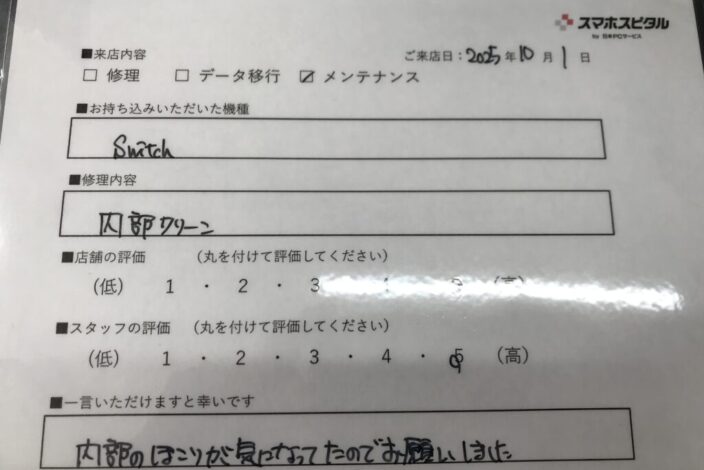 スマホスピタル
by 日本PCサービス
■来店内容
ご来店日：2025年10月1日
□ 修理 □ データ移行 ☑ メンテナンス
■お持ち込みいただいた機種
Switch
■修理内容
内部クリーン
■店舗の評価 （丸を付けて評価してください）
（低） 1 ・ 2 ・ 3
■スタッフの評価 （丸を付けて評価してください）
（低） 1 ・ 2 ・ 3 ・ 4 ・ 5 （高）
■一言いただけますと幸いです
内部のほこりが気になってたのでお願いしました